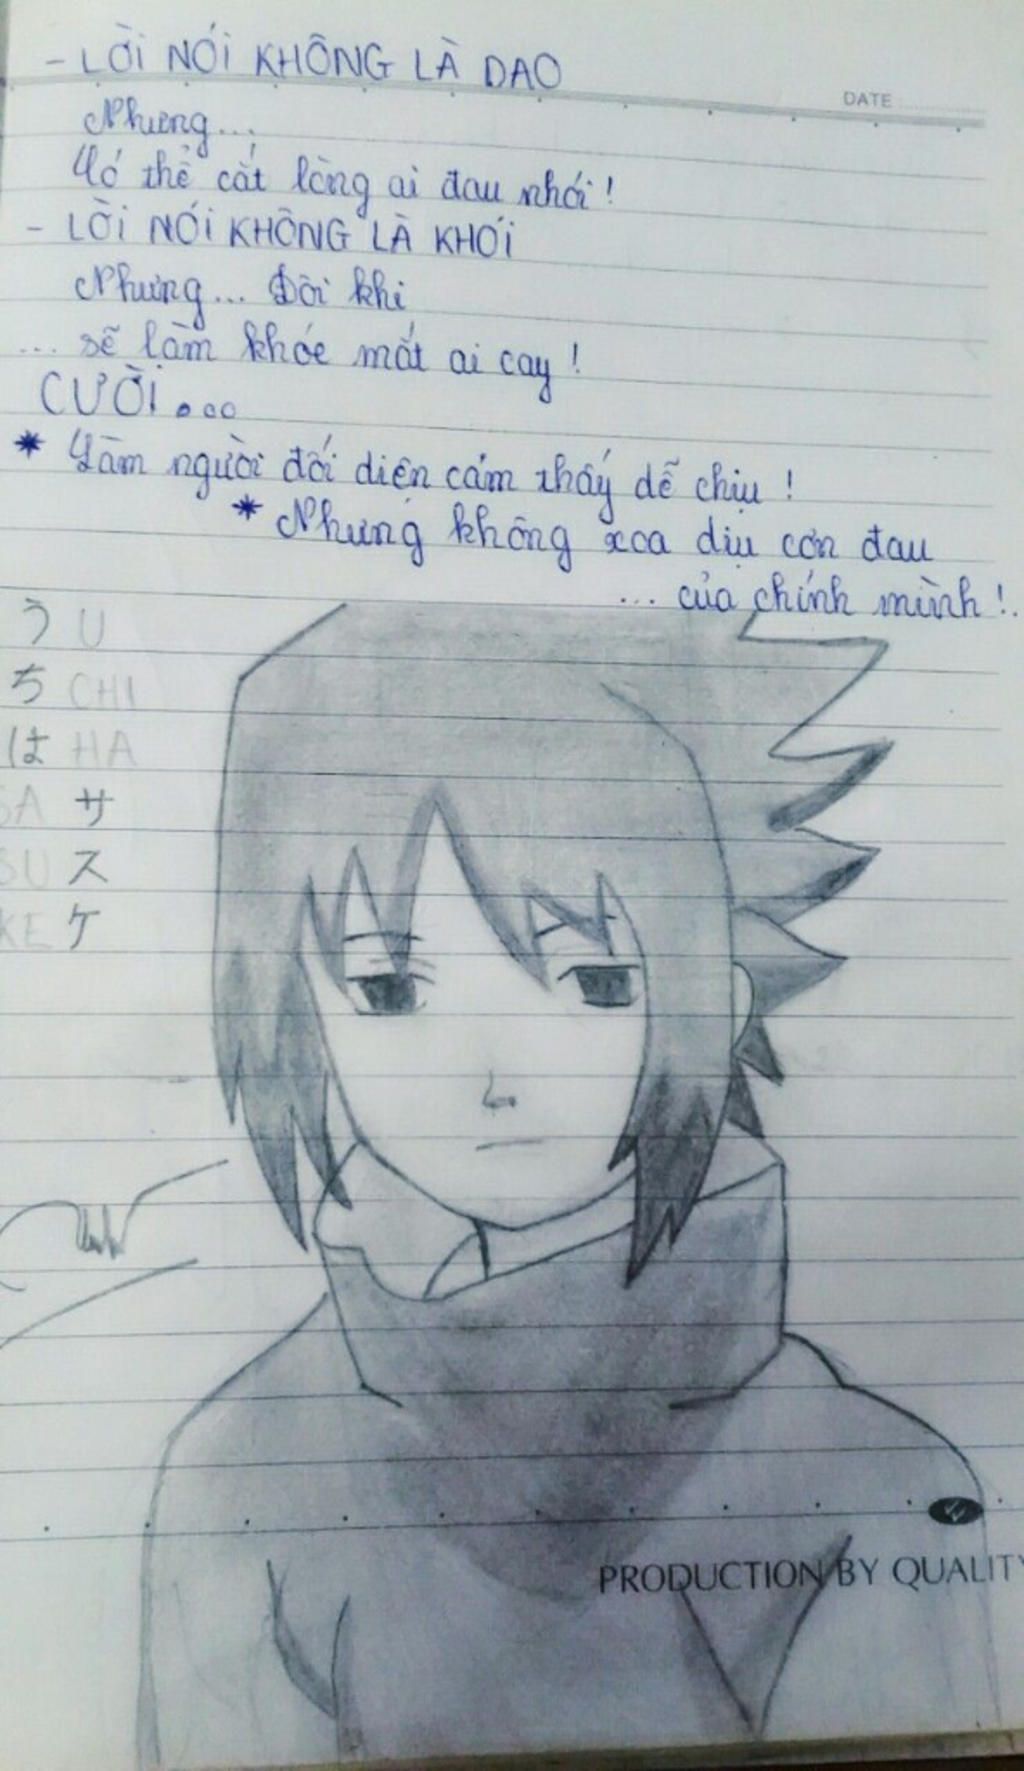 - LỜI NÓI KHÔNG LÀ DAO
DATE :
Nhưng...
Có thể cắt lòng ai đau nhói !
- LỜI NÓI KHÔNG LÀ KHÓI
Nhưng... Đôi khi
... sẽ làm khóe mắt ai cay !
CƯỜI...
* Làm người đối diện cảm thấy dễ chịu !
* Nhưng không xoa dịu cơn đau
... của chính mình !.
う U
ち CHI
は HA
SA サ
SU ス
KE ケ
PRODUCTION BY QUALITY